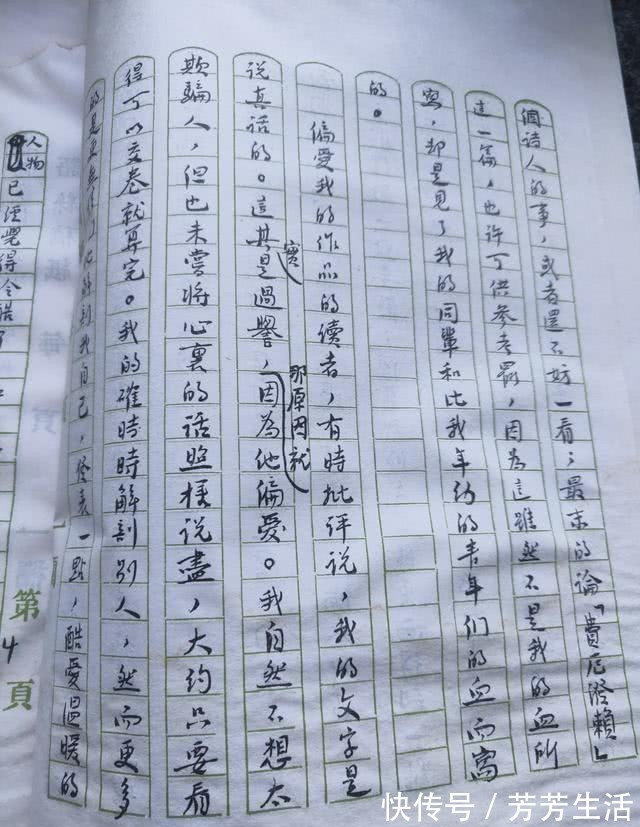 個詩人的事，或者還不妨一看；最末的論「費厄潑賴」
這一篇，也许可供参考罷，因為這雖然不是我的血所
寫，却是見了我的同輩和比我年幼的青年們的血而寫
的。
偏愛我的作品的讀者，有時批评说，我的文字是
说真話的。這其實是過譽，那原因就因為他偏愛。我自然不想太
欺騙人，但也未嘗將心裏的話照樣说盡，大约只要看
得可以交卷就算完。我的確時時解剖别人，然而更多
的是更無情面地解剖我自己，發表一點，酷愛温暖的
人物已經覺得冷酷了
第4頁
快传号 / 芳芳生活